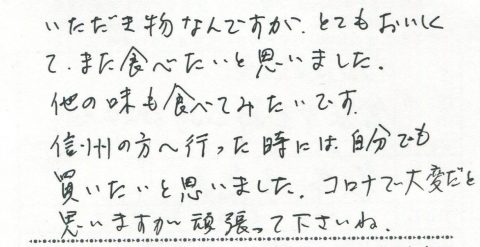 いただき物なんですが、とてもおいしく
て、また食べたいと思いました。
他の味も食べてみたいです。
信州の方へ行った時には、自分でも
買いたいと思いました。コロナで大変だと
思いますが頑張って下さいね。